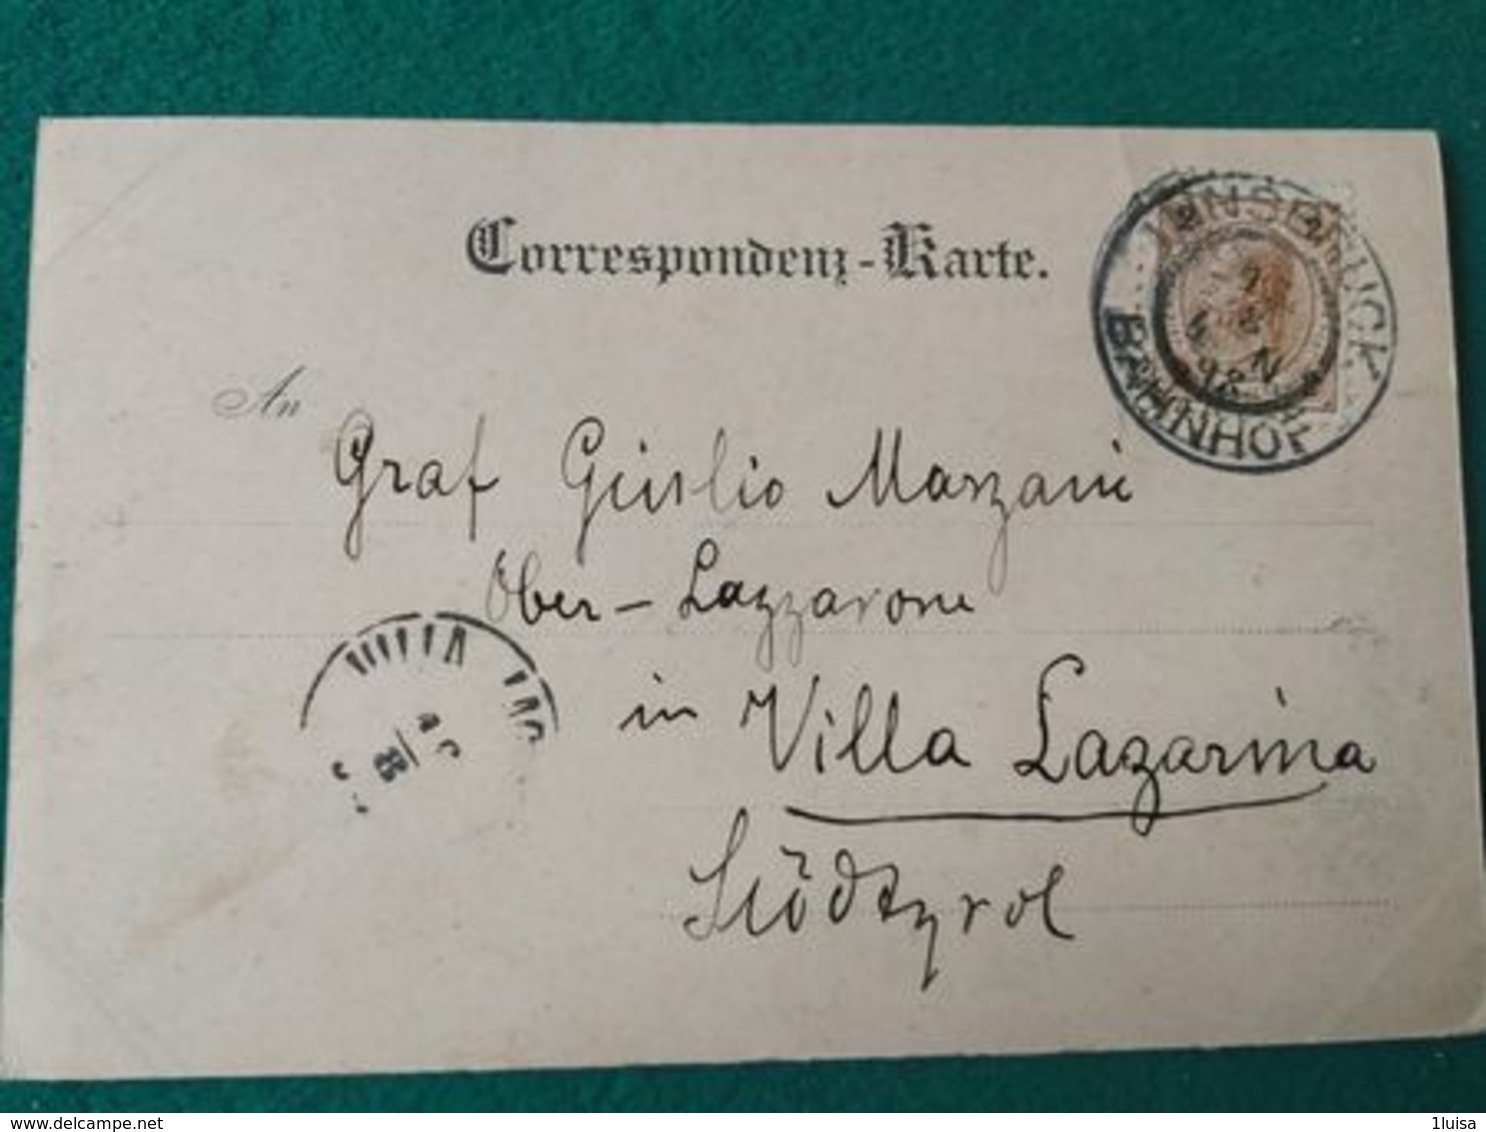 Correspondenz-Karte.
INNSBRUCK
BAHNHOF
98
An
Graf Giulio Marzani
Ober-Lazzarone
in Villa Lazarina
Südtyrol
VILLA
delcampe.net
1luisa